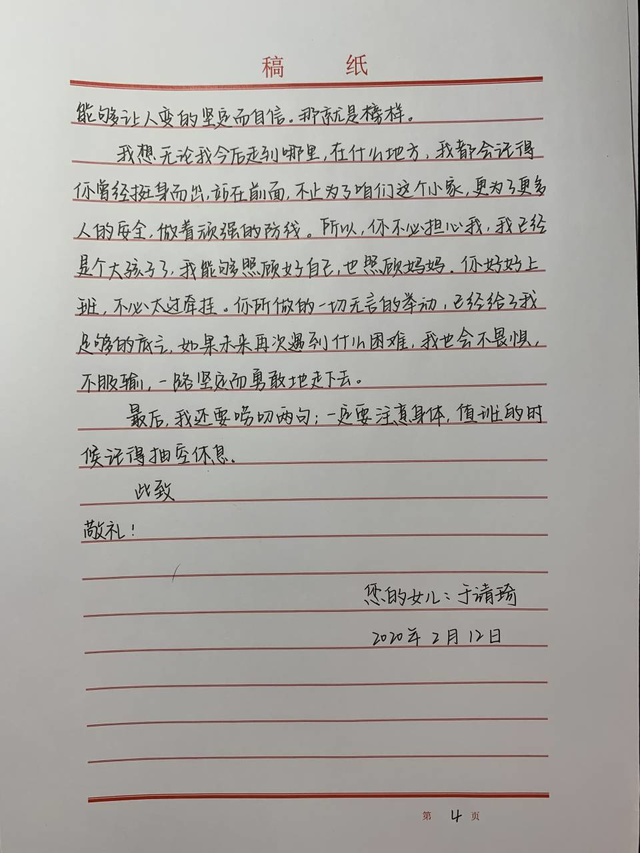 稿 纸
能够让人变的坚定而自信。那就是榜样。
我想无论我今后走到哪里，在什么地方，我都会记得
你曾经挺身而出，站在前面，不止为了咱们这个小家，更为了更多
人的安全，做着顽强的防线。所以，你不必担心我，我已经
是个大孩子了，我能够照顾好自己，也照顾妈妈。你好好上
班，不必太过牵挂。你所做的一切无言的举动，已经给了我
足够的底气，如果未来再次遇到什么困难，我也会不畏惧，
不服输，一路坚定而勇敢地走下去。
最后，我还要唠叨两句；一定要注意身体，值班的时
候记得抽空休息。
此致
敬礼！
您的女儿：于请琦
2020年2月12日
第 4 页